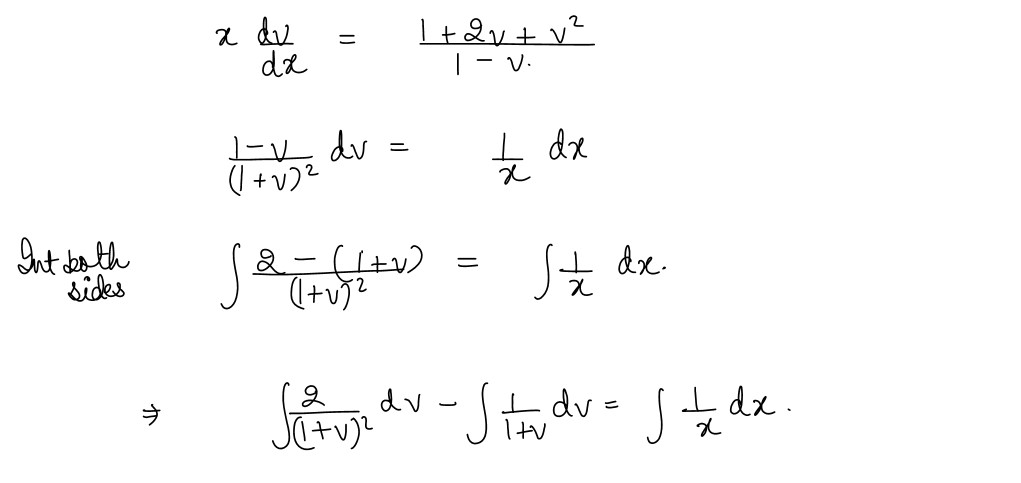 x dv/dx = (1 + 2v + v²)/(1 - v.)
(1-v)/(1+v)² dv = 1/x dx
Int both sides ∫ (2 - (1+v))/(1+v)² = ∫ 1/x dx.
⇒ ∫ 2/(1+v)² dv - ∫ 1/(1+v) dv = ∫ 1/x dx.